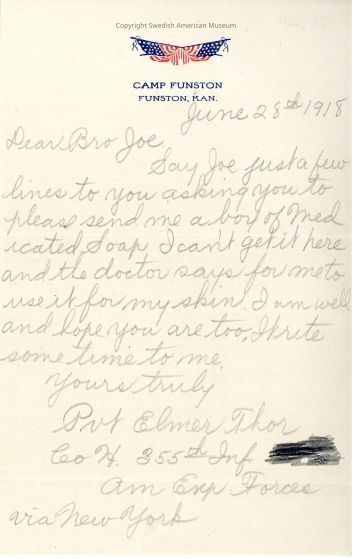 Copyright Swedish American Museum
CAMP FUNSTON
FUNSTON, KAN.
June 28th 1918
Dear Bro Joe.
Say Joe just a few
lines to you asking you to
please send me a box of Med
icated Soap I can't get it here
and the doctor says for me to
use it for my skin. I am well
and hope you are too, Write
some time to me
Yours truly
Pvt Elmer Thor
Co H. 355th Inf
Am Exp Forces
via New York